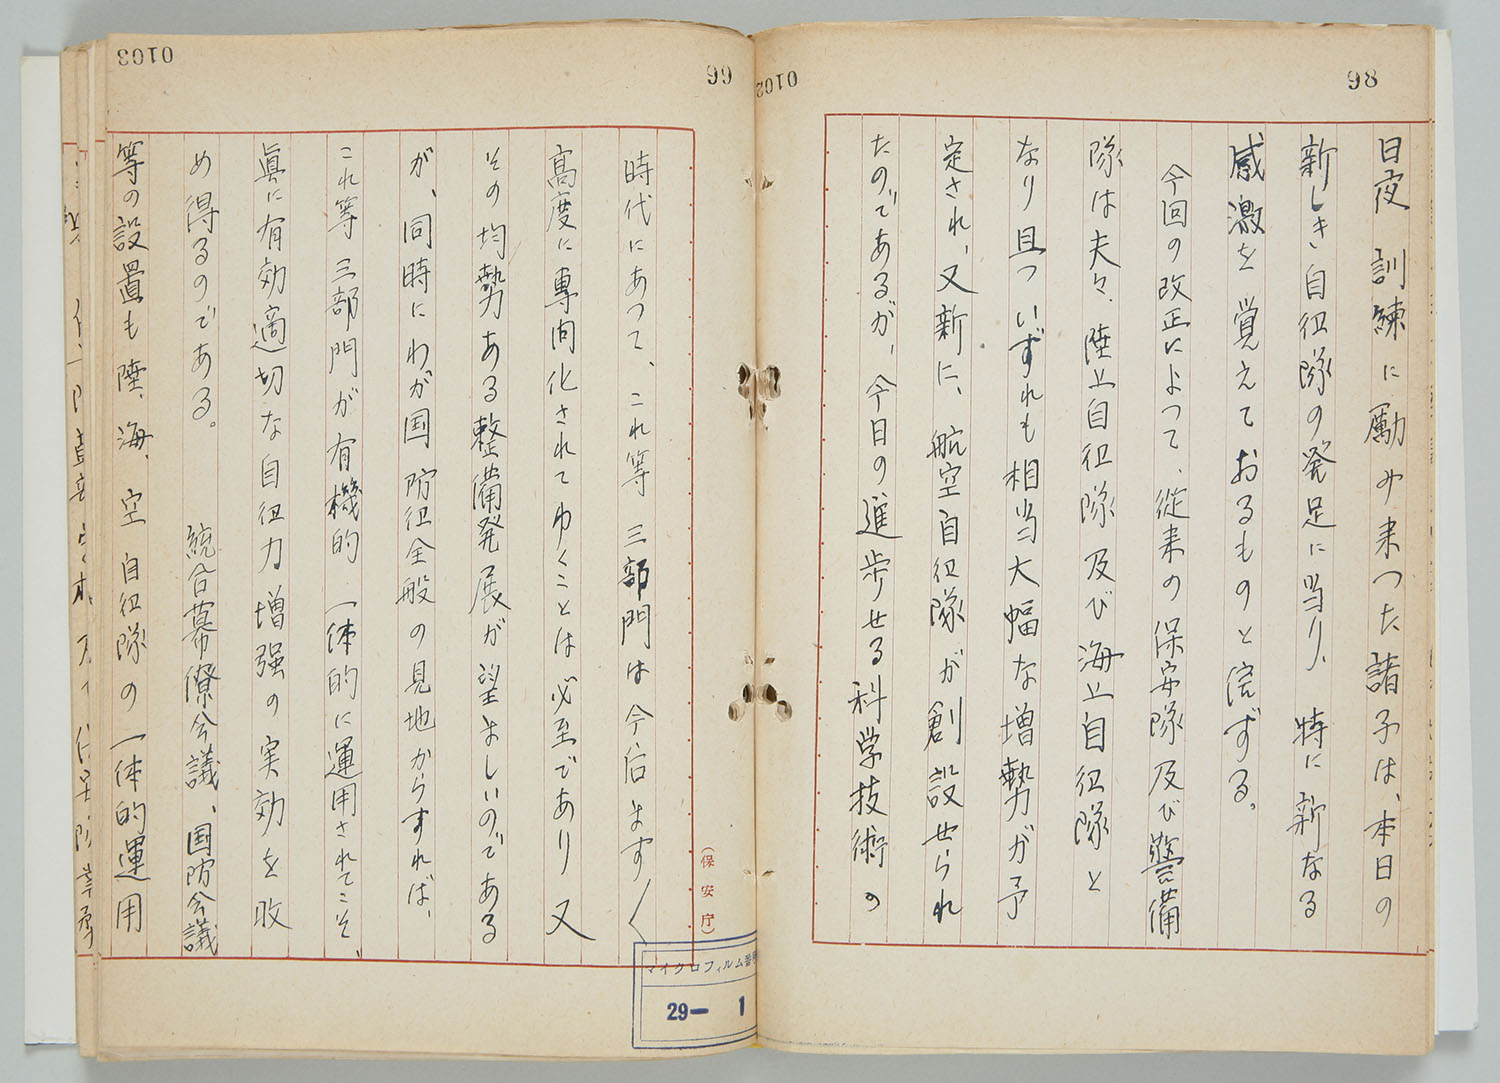 98
0102
日夜訓練に励み来つた諸子は、本日の
新しき自衛隊の発足に当り、特に新なる
感激を覚えておるものと信ずる。
今回の改正によつて、従来の保安隊及び警備
隊は夫々、陸上自衛隊及び海上自衛隊と
なり且ついずれも相当大幅な増勢が予
定され、又新に、航空自衛隊が創設せられ
たのであるが、今日の進歩せる科学技術の
99
0103
時代にあつて、これ等三部門は今后ます〱
高度に専問化されてゆくことは必至であり又
その均勢ある整備発展が望ましいのである
が、同時にわが国防衛全般の見地からすれば、
これ等三部門が有機的一体的に運用されてこそ、
眞に有効適切な自衛力増强の実効を收
め得るのである。統合幕僚会議、国防会議
等の設置も陸、海、空自衛隊の一体的運用
(保安庁)
マイクロフィルム番
29— 1